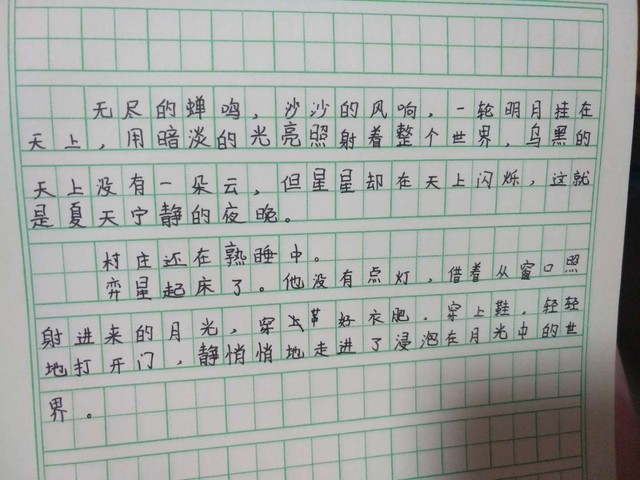 无尽的蝉鸣，沙沙的风响，一轮明月挂在
天上，用暗淡的光亮照射着整个世界，乌黑的
天上没有一朵云，但星星却在天上闪烁，这就
是夏天宁静的夜晚。
村庄还在熟睡中。
弈星起床了。他没有点灯，借着从窗口照
射进来的月光，穿好衣服，穿上鞋，轻轻
地打开门，静悄悄地走进了浸泡在月光中的世
界。